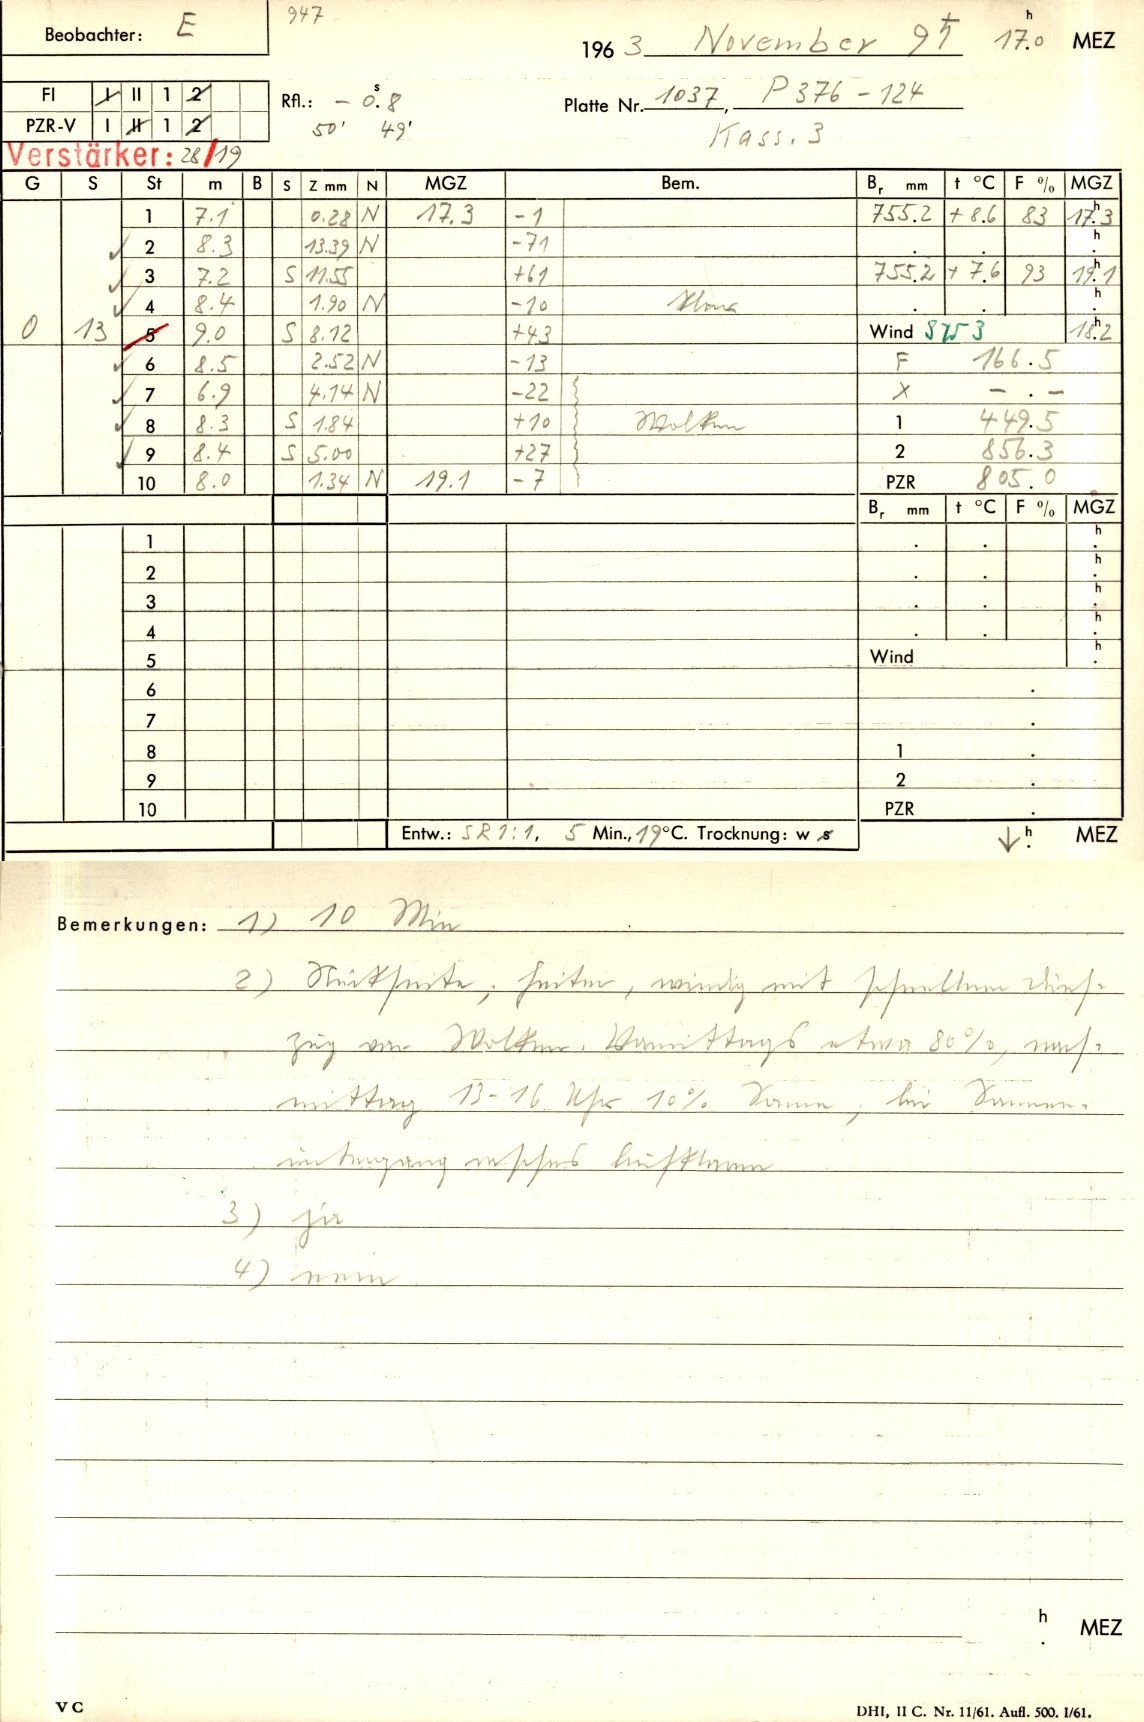 Beobachter: E
947
196 3 November 9 ♄ 17.0 h MEZ
FI I II 1 2
Rfl.: - 0.8 s
Platte Nr. 1037, P 376 - 124
PZR-V I II 1 2
50' 49'
Kass. 3
Verstärker: 28/19
G S St m B S Z mm N MGZ Bem. Br mm t °C F % MGZ
1 7.1 0.28 N 17.3 -1 755.2 +8.6 83 17.3 h
2 8.3 13.39 N -71 . . h
3 7.2 S 11.55 +61 755.2 +7.6 93 19.1 h
4 8.4 1.90 N -10 klar . . h
0 13 5 9.0 S 8.12 +43 Wind 18.2 h
6 8.5 2.52 N -13 F 166.5
7 6.9 4.14 N -22 X - . -
8 8.3 S 1.84 +10 Wolken 1 449.5
9 8.4 S 5.00 +27 2 856.3
10 8.0 1.34 N 19.1 -7 PZR 805.0
Br mm t °C F % MGZ
1 . . h
2 . . h
3 . . h
4 . . h
5 Wind h
6 .
7 .
8 1 .
9 2 .
10 PZR .
Entw.: SR 1:1, 5 Min., 19 °C. Trocknung: w s ↓ h MEZ
Bemerkungen: 1) 10 Min
2) Rückseite, heiter, windig mit schnellem Durch-
zug von Wolken. Vormittags etwa 80%, nach-
mittag 13-16 Uhr 10% Sonne, bei Sonnen-
untergang rasches Aufklaren
3) ja
4) nein
h
. MEZ
V C
DHI, II C. Nr. 11/61. Aufl. 500. I/61.